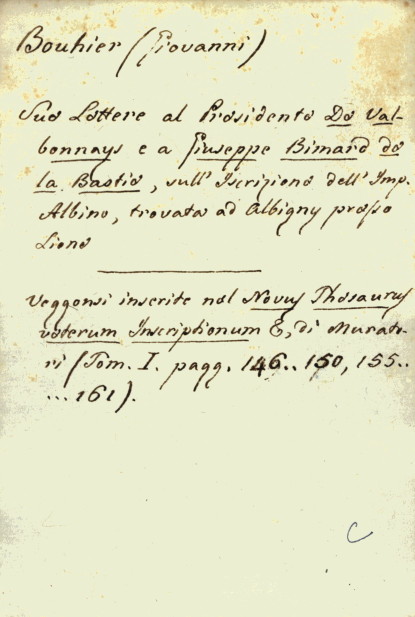 Bouhier (Giovanni)
Sue Lettere al Presidente De Val-
bonnays e a Giuseppe Bimard de
la Bastie, sull' Iscrizione dell' Imp.
Albino, trovata ad Albigny presso
Lione
Veggonsi inserite nel Novus Thesaurus
veterum Inscriptionum &, di Murato-
ri (Tom. I. pagg. 146.. 150, 155..
... 161).
C